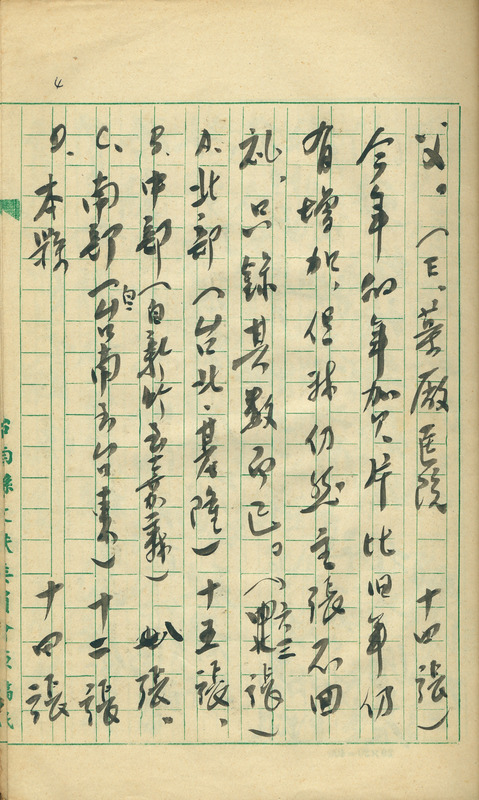 4
父。（E．菜厰医院　十四張）
今年的年加賀片比旧年仍
有增加，但我仍然主張不回
礼，只錄其数而已。（六三張）
A．北部（台北、基隆）十五張、
B．中部（自新竹至嘉義）　張、
C．南部（自台南至台東）十二張
D．本縣　十四張